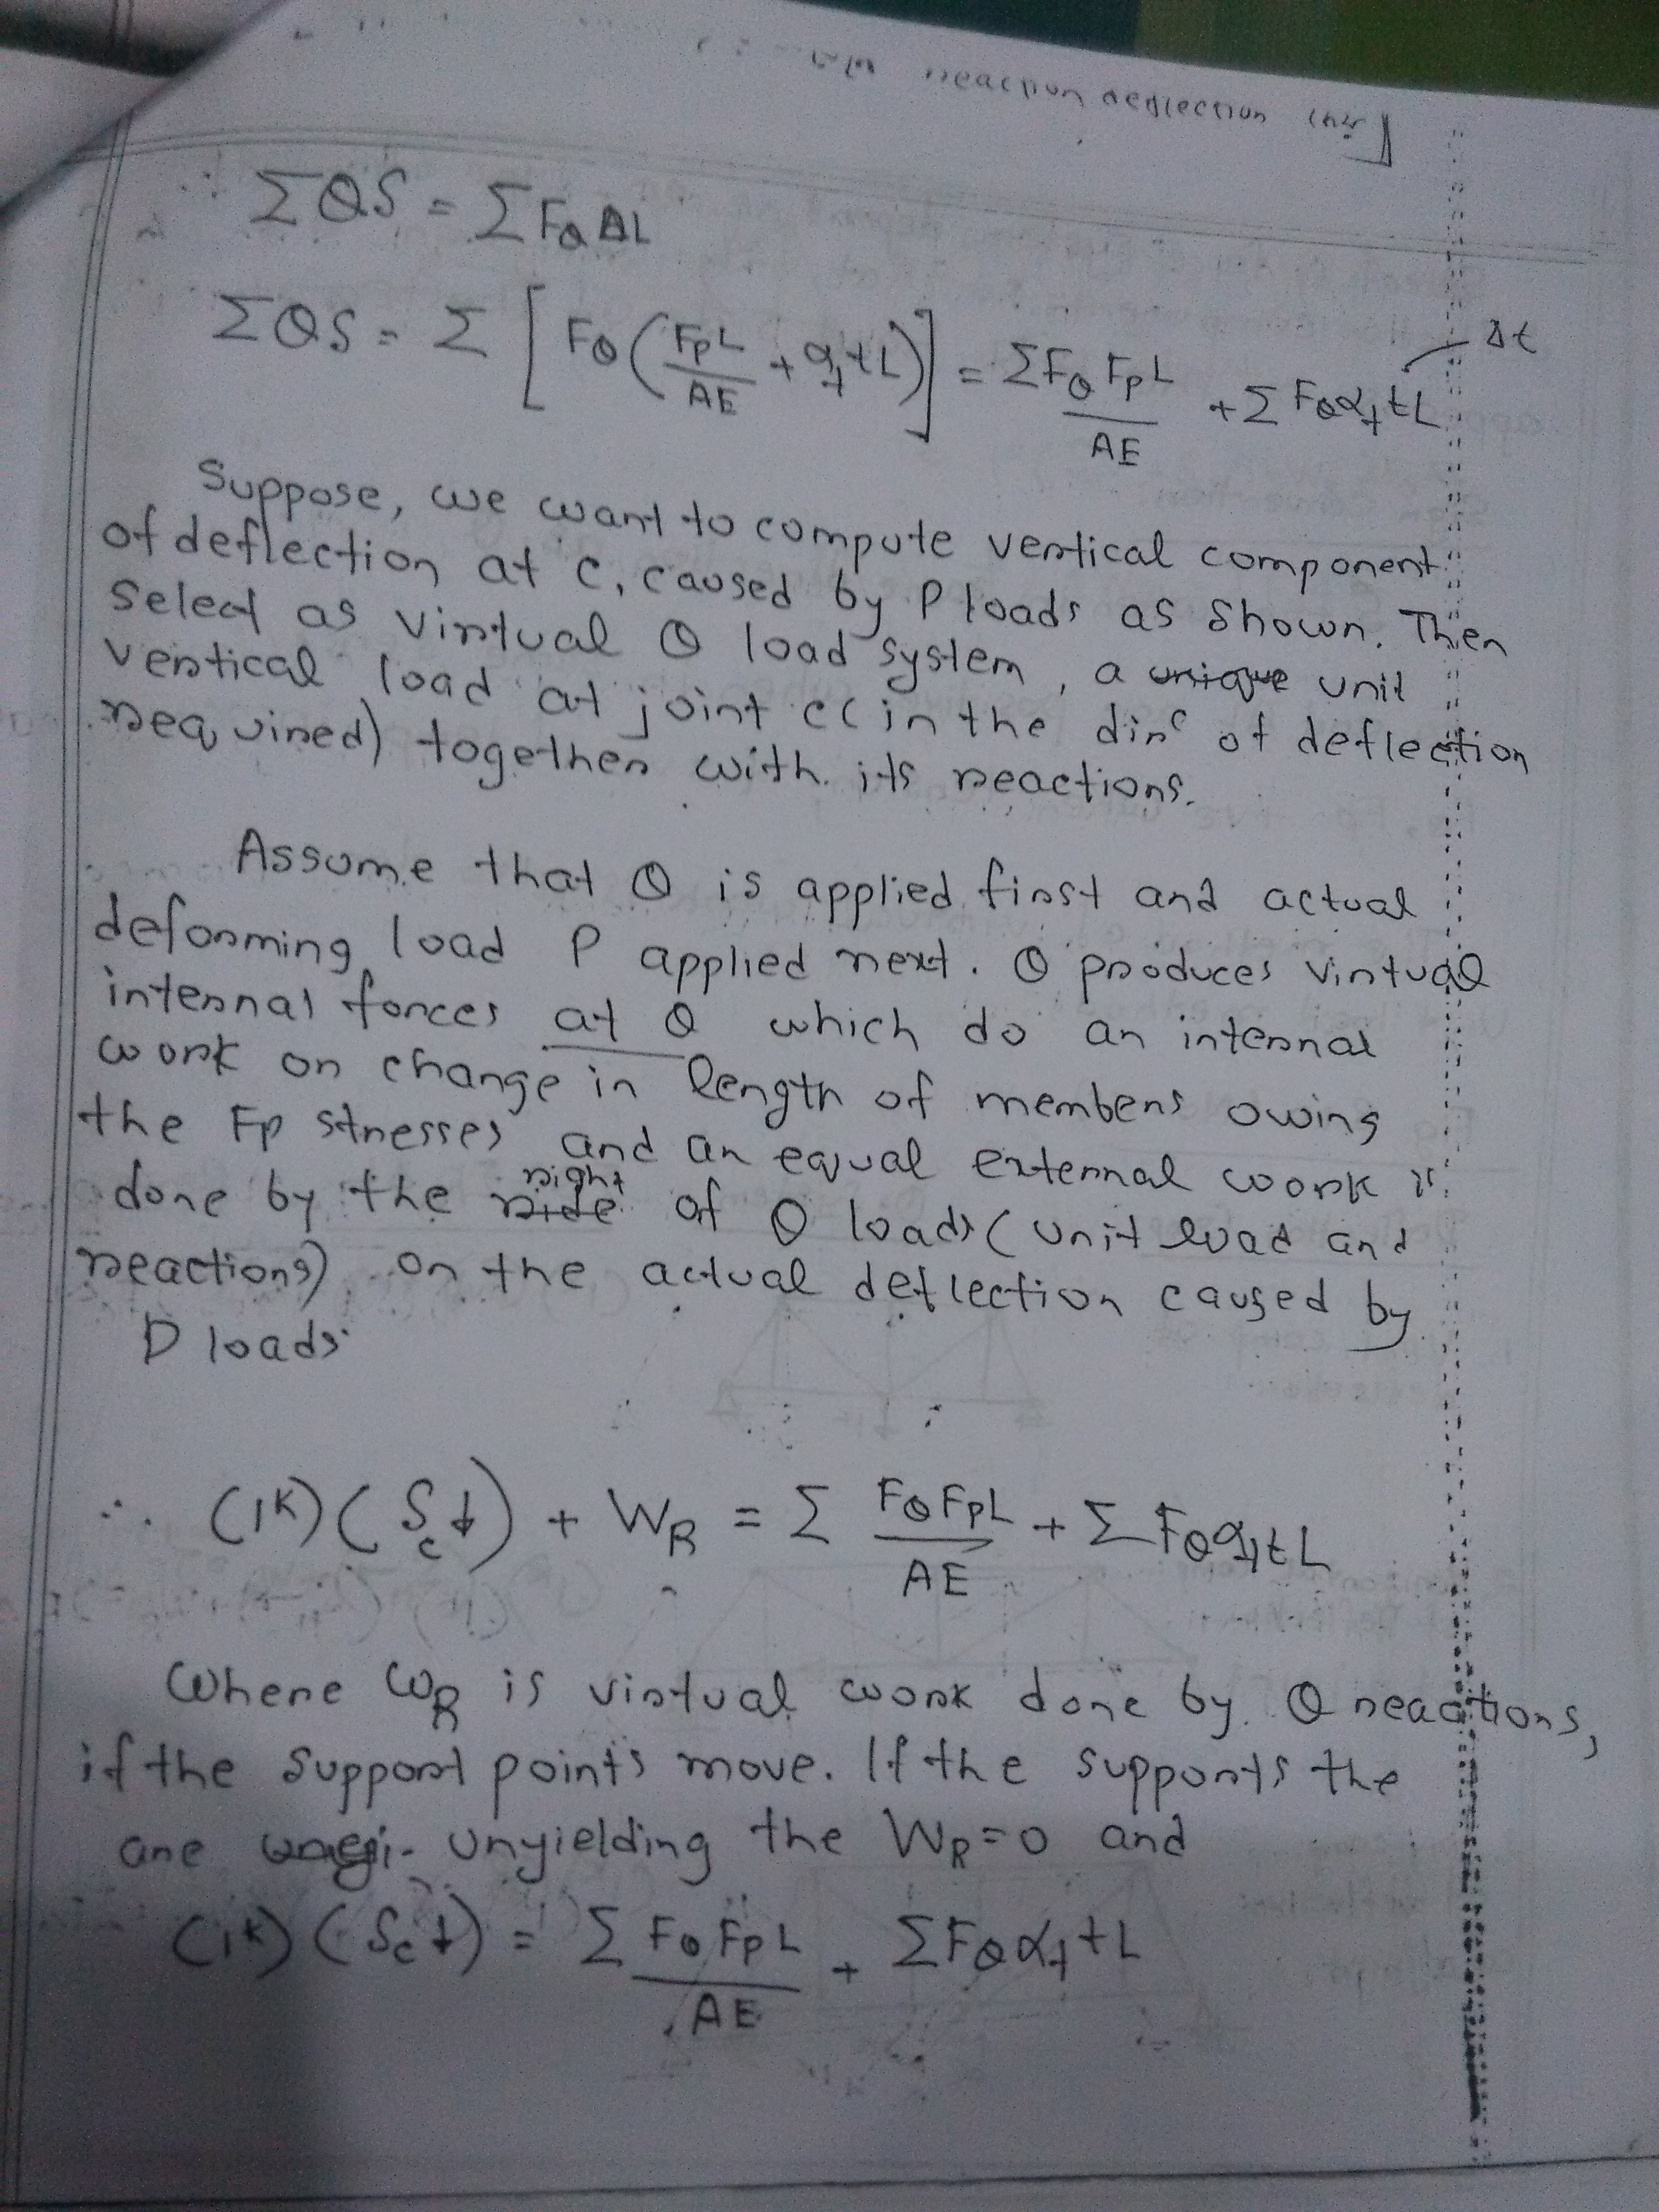 reaction deflection
∴ ΣQδ = ΣF_Q ΔL
ΣQδ = Σ [F_Q (F_P L / AE + α_t t L)] = ΣF_Q F_P L / AE + Σ F_Q α_t t L Δt
Suppose, we want to compute vertical component
of deflection at C, caused by P loads as shown. Then
Select as virtual Q load system, a unique unit
vertical load at joint C (in the dirⁿ of deflection
required) together with its reactions.
Assume that Q is applied first and actual
deforming load P applied next. Q produces virtual
internal forces at Q which do an internal
work on change in length of members owing
the Fp stresses and an equal external work is
done by the ride right of Q loads (unit load and
reactions) on the actual deflection caused by
P loads
∴ (1^K)(δ_c↓) + W_R = Σ F_Q F_P L / AE + Σ F_Q α_t t L
Where W_R is virtual work done by Q reactions,
if the support points move. If the supports the
are unyielding the W_R = 0 and
(1^K)(δ_c↓) = Σ F_Q F_P L / AE + ΣF_Q α_t t L